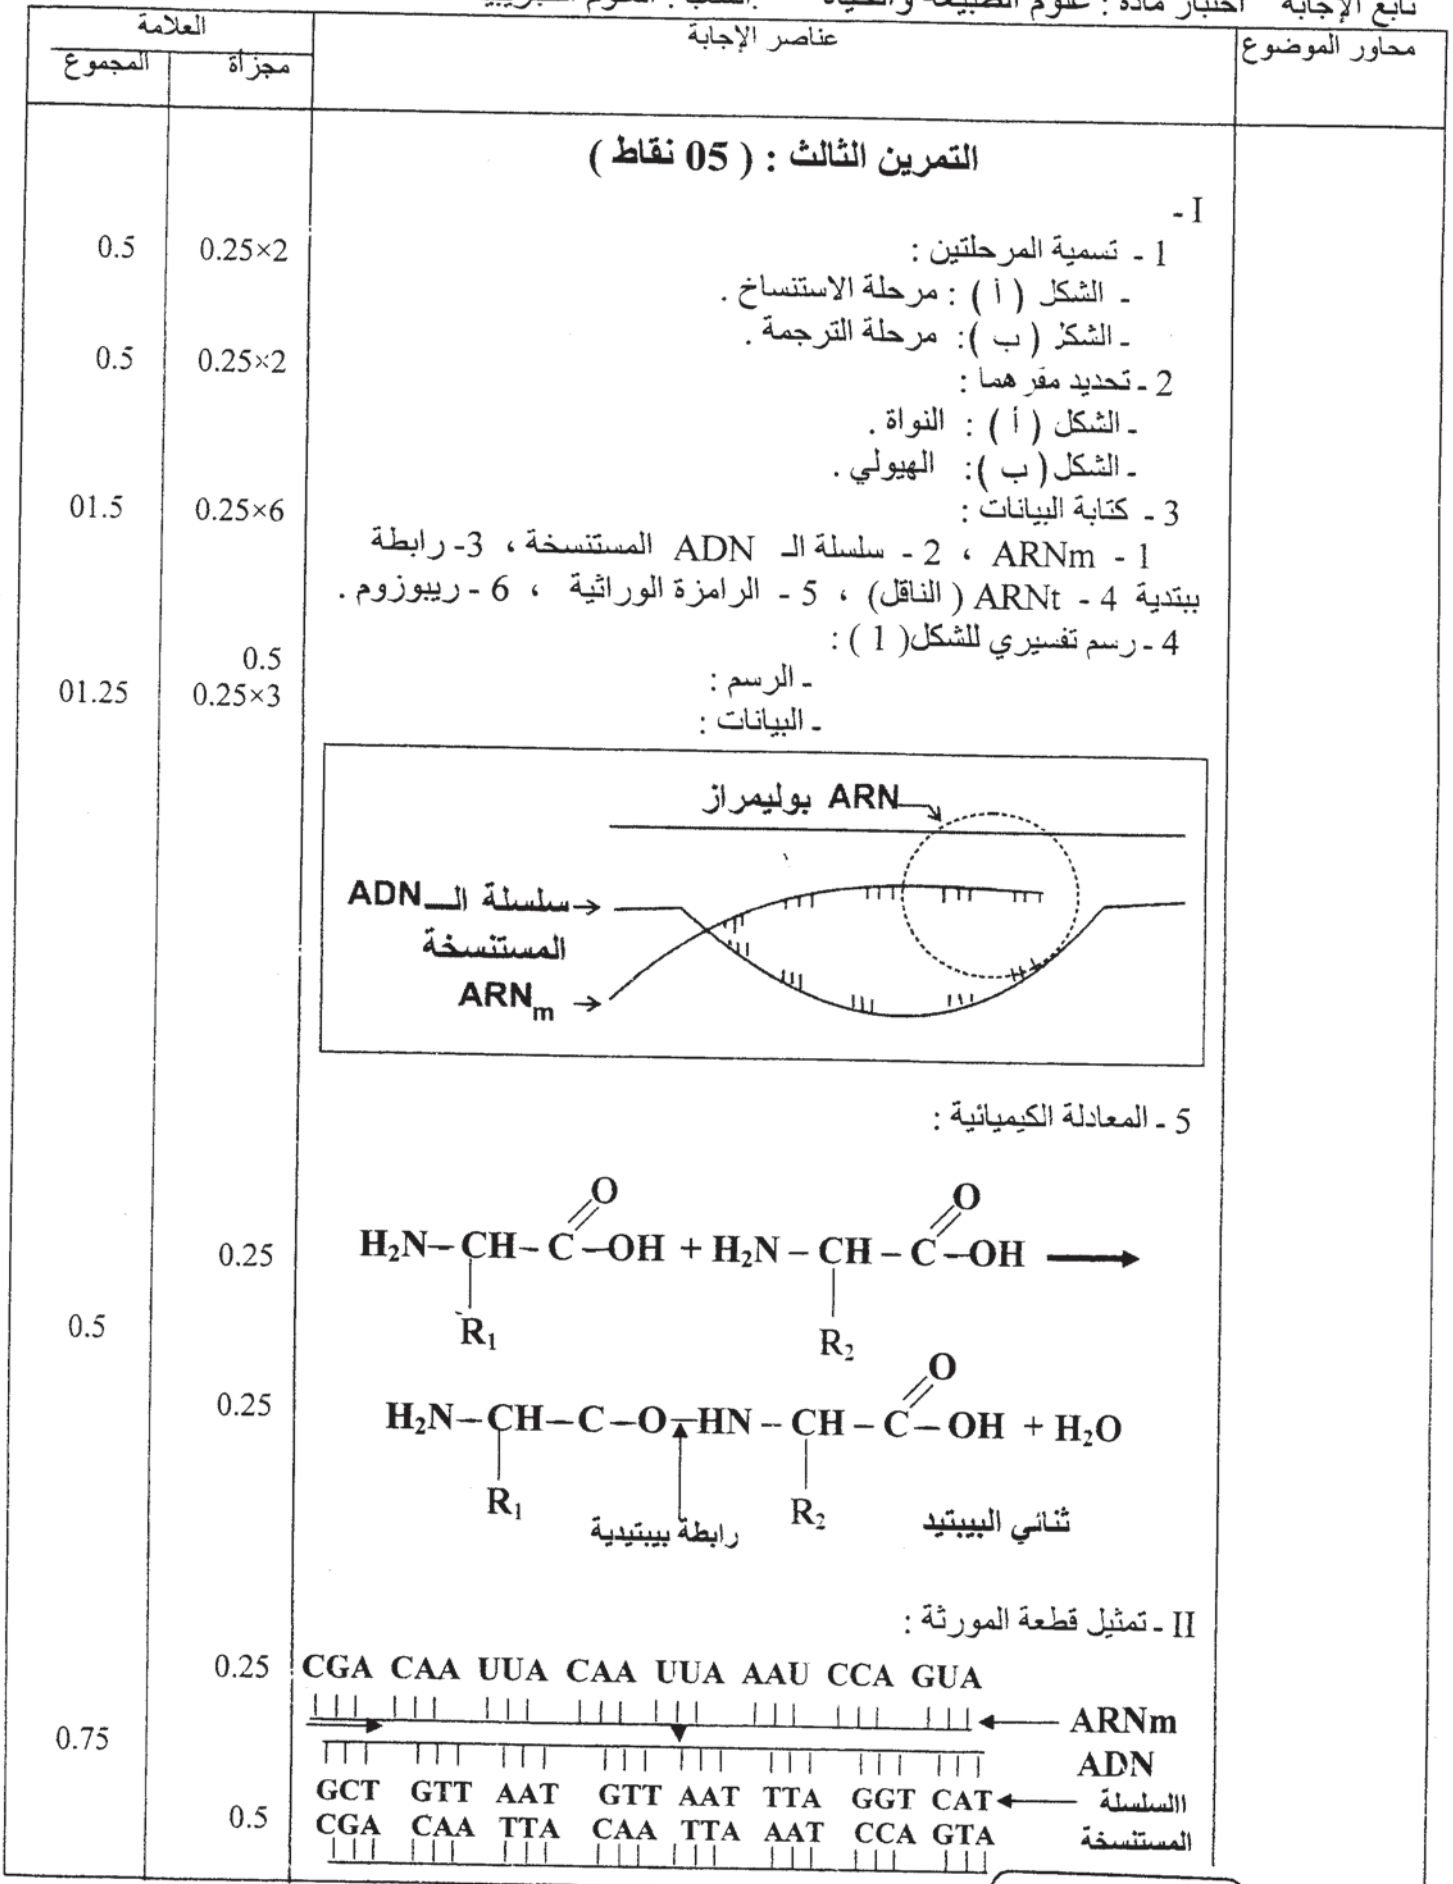 تابع الإجابة اختبار مادة : علوم الطبيعة والحياة الشعب : العلوم التجريبية
محاور الموضوع عناصر الإجابة العلامة
مجزأة المجموع
التمرين الثالث : ( 05 نقاط )
I -
1 - تسمية المرحلتين : 0.25×2 0.5
- الشكل ( أ ) : مرحلة الاستنساخ .
- الشكل ( ب ): مرحلة الترجمة .
2 - تحديد مقرهما : 0.25×2 0.5
- الشكل ( أ ) : النواة .
- الشكل ( ب ): الهيولي .
3 - كتابة البيانات : 0.25×6 01.5
1 - ARNm ، 2 - سلسلة الـ ADN المستنسخة ، 3- رابطة
ببتدية 4 - ARNt ( الناقل) ، 5 - الرامزة الوراثية ، 6 - ريبوزوم .
4 - رسم تفسيري للشكل( 1 ) :
- الرسم : 0.5
- البيانات : 0.25×3 01.25
ARN بوليمراز
سلسلة الــ ADN
المستنسخة
ARNm
5 - المعادلة الكيميائية :
O O
H₂N–CH–C–OH + H₂N–CH–C–OH 0.25
R₁ R₂ 0.5
O
H₂N–CH–C–O–HN–CH–C–OH + H₂O 0.25
R₁ R₂
رابطة بيبتيدية ثنائي البيبتيد
II - تمثيل قطعة المورثة :
CGA CAA UUA CAA UUA AAU CCA GUA 0.25
ARNm
0.75
ADN
GCT GTT AAT GTT AAT TTA GGT CAT االسلسلة
CGA CAA TTA CAA TTA AAT CCA GTA المستنسخة 0.5